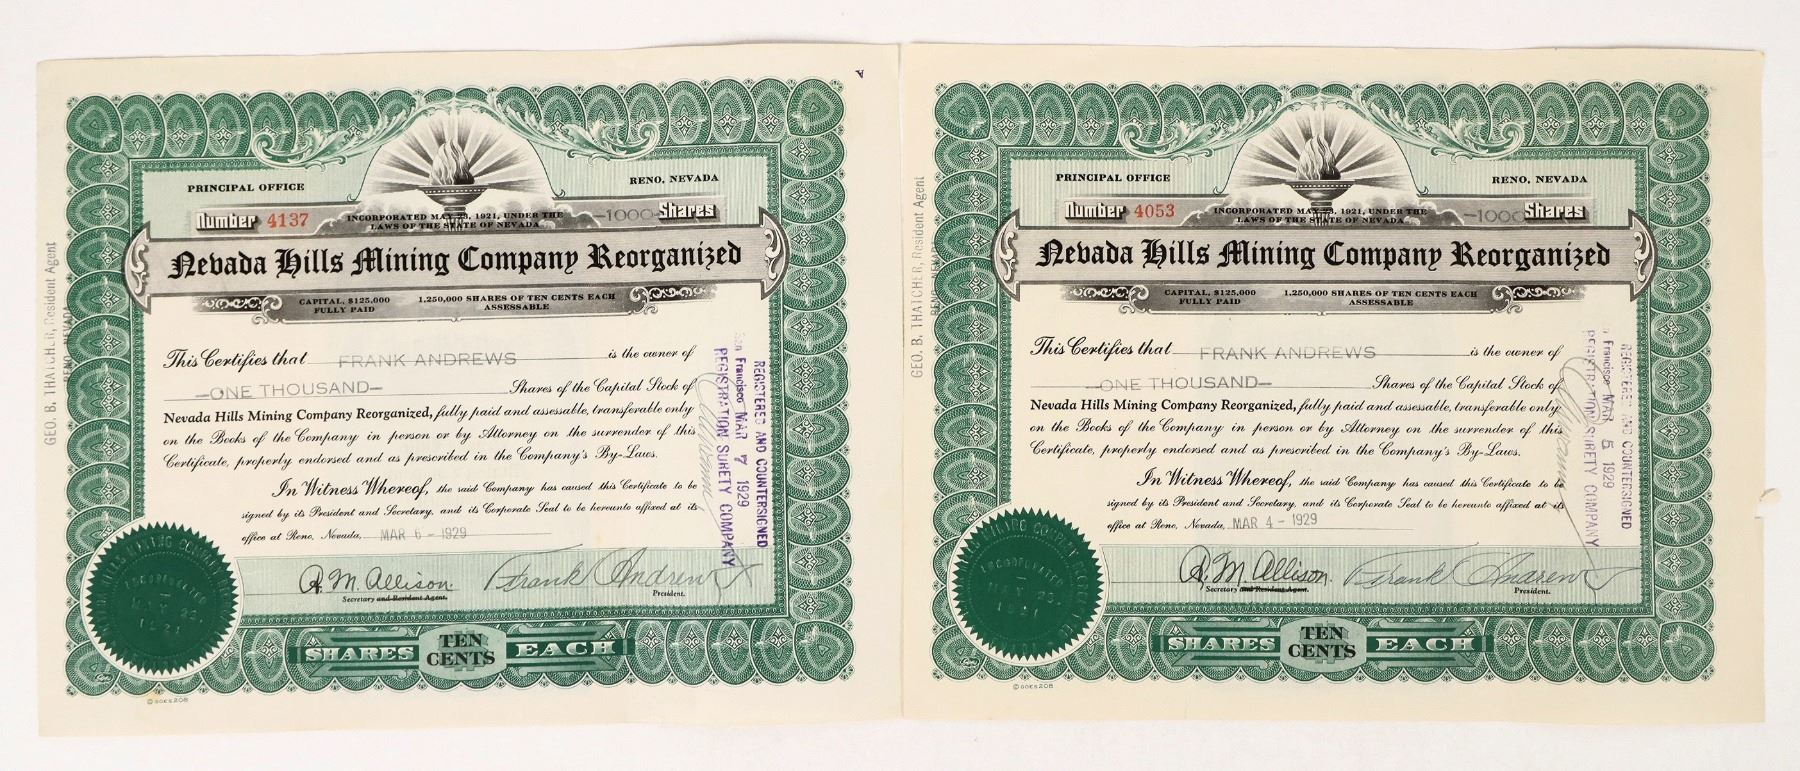 PRINCIPAL OFFICE
RENO, NEVADA
Number 4137
INCORPORATED MAY 23, 1921, UNDER THE
LAWS OF THE STATE OF NEVADA
-1000- Shares
Nevada Hills Mining Company Reorganized
CAPITAL, $125,000
FULLY PAID
1,250,000 SHARES OF TEN CENTS EACH
ASSESSABLE
This Certifies that FRANK ANDREWS is the owner of
-ONE THOUSAND- Shares of the Capital Stock of
Nevada Hills Mining Company Reorganized, fully paid and assessable, transferable only
on the Books of the Company in person or by Attorney on the surrender of this
Certificate, properly endorsed and as prescribed in the Company's By-Laws.
In Witness Whereof, the said Company has caused this Certificate to be
signed by its President and Secretary, and its Corporate Seal to be hereunto affixed at its
office at Reno, Nevada, MAR 6 - 1929
A. M. Allison.
Frank Andrews
Secretary and Resident Agent.
President.
SHARES TEN CENTS EACH
© GOES 208
GEO. B. THATCHER, Resident Agent
RENO, NEVADA
REGISTERED AND COUNTERSIGNED
San Francisco MAR 7 1929
REGISTRATION SURETY COMPANY
INCORPORATED
MAY 23,
1921
PRINCIPAL OFFICE
RENO, NEVADA
Number 4053
INCORPORATED MAY 23, 1921, UNDER THE
LAWS OF THE STATE OF NEVADA
-1000 Shares
Nevada Hills Mining Company Reorganized
CAPITAL, $125,000
FULLY PAID
1,250,000 SHARES OF TEN CENTS EACH
ASSESSABLE
This Certifies that FRANK ANDREWS is the owner of
-ONE THOUSAND- Shares of the Capital Stock of
Nevada Hills Mining Company Reorganized, fully paid and assessable, transferable only
on the Books of the Company in person or by Attorney on the surrender of this
Certificate, properly endorsed and as prescribed in the Company's By-Laws.
In Witness Whereof, the said Company has caused this Certificate to be
signed by its President and Secretary, and its Corporate Seal to be hereunto affixed at its
office at Reno, Nevada, MAR 4 - 1929
A. M. Allison.
Frank Andrews
Secretary and Resident Agent.
President.
SHARES TEN CENTS EACH
© GOES 208
GEO. B. THATCHER, Resident Agent
RENO, NEVADA
REGISTERED AND COUNTERSIGNED
Francisco MAR 5 1929
REGISTRATION SURETY COMPANY
INCORPORATED
MAY 23,
1921